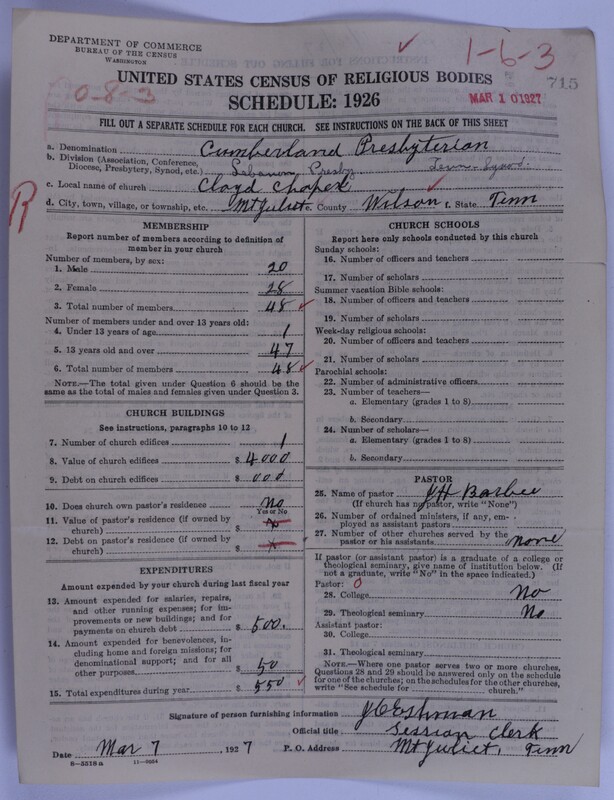 DEPARTMENT OF COMMERCE
BUREAU OF THE CENSUS
WASHINGTON
1-6-3
715
UNITED STATES CENSUS OF RELIGIOUS BODIES
0-8-3
SCHEDULE: 1926
MAR 10 1927
FILL OUT A SEPARATE SCHEDULE FOR EACH CHURCH. SEE INSTRUCTIONS ON THE BACK OF THIS SHEET
a. Denomination Cumberland Presbyterian
b. Division (Association, Conference, Diocese, Presbytery, Synod, etc.) Lebanon Presby Tenn. Synod.
c. Local name of church Cloyd Chapel
R
d. City, town, village, or township, etc. Mt Juliet e. County Wilson f. State Tenn
MEMBERSHIP
Report number of members according to definition of
member in your church
Number of members, by sex:
1. Male 20
2. Female 28
3. Total number of members 48
Number of members under and over 13 years old:
4. Under 13 years of age 1
5. 13 years old and over 47
6. Total number of members 48
NOTE.—The total given under Question 6 should be
same as the total of males and females given under Question 3.
CHURCH BUILDINGS
See instructions, paragraphs 10 to 12
7. Number of church edifices 1
8. Value of church edifices $ 4000
9. Debt on church edifices $ 000
10. Does church own pastor's residence No
Yes or No
11. Value of pastor's residence (if owned by
church) $
12. Debt on pastor's residence (if owned by
church) $
EXPENDITURES
Amount expended by your church during last fiscal year
13. Amount expended for salaries, repairs,
and other running expenses; for im-
provements or new buildings; and for
payments on church debt $ 500.
14. Amount expended for benevolences, in-
cluding home and foreign missions; for
denominational support; and for all
other purposes $ 50
15. Total expenditures during year $ 550
CHURCH SCHOOLS
Report here only schools conducted by this church
Sunday schools:
16. Number of officers and teachers
17. Number of scholars
Summer vacation Bible schools:
18. Number of officers and teachers
19. Number of scholars
Week-day religious schools:
20. Number of officers and teachers
21. Number of scholars
Parochial schools:
22. Number of administrative officers
23. Number of teachers—
a. Elementary (grades 1 to 8)
b. Secondary
24. Number of scholars—
a. Elementary (grades 1 to 8)
b. Secondary
PASTOR
25. Name of pastor J H Barbee
(If church has no pastor, write "None")
26. Number of ordained ministers, if any, em-
ployed as assistant pastors
27. Number of other churches served by the
pastor or his assistants none
If pastor (or assistant pastor) is a graduate of a college or
theological seminary, give name of institution below. (If
not a graduate, write "No" in the space indicated.)
Pastor: 0
28. College No
29. Theological seminary No
Assistant pastor:
30. College
31. Theological seminary
NOTE.—Where one pastor serves two or more churches,
Questions 28 and 29 should be answered only on the schedule
for one of the churches; on the schedules for the other churches,
write "See schedule for church."
Signature of person furnishing information J C Eshman
Official title Session Clerk
Date Mar 7, 1927 P. O. Address Mt Juliet, Tenn
8-5518 a 11-9054